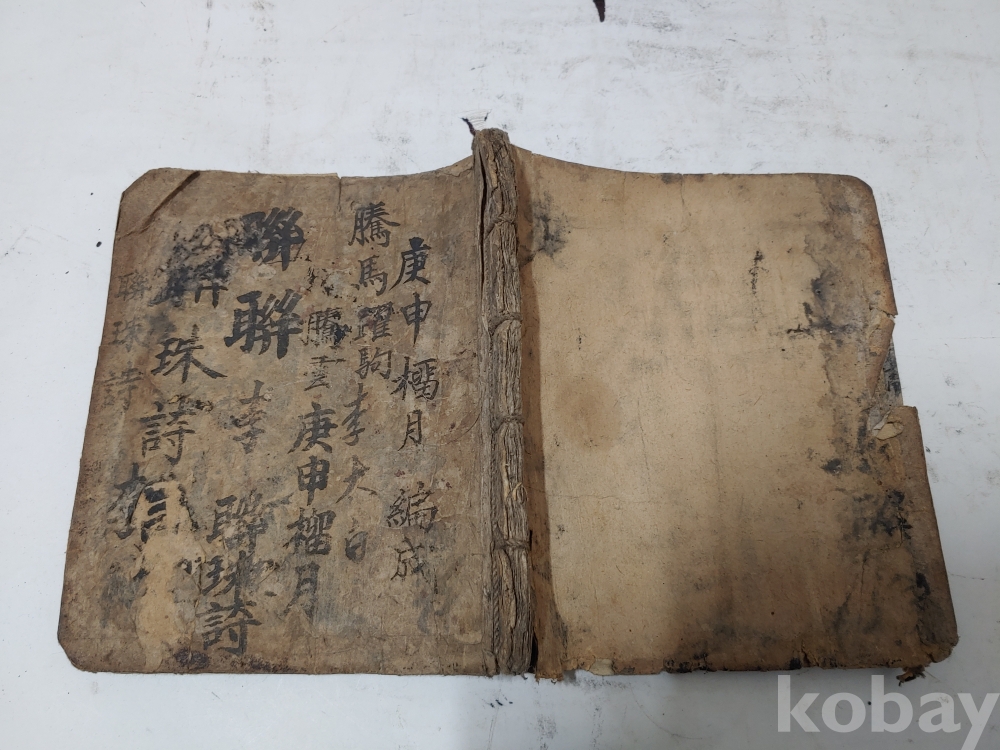 庚申榴月編成
騰馬躍駒李太白
騰雲庚申榴月
聯聯李聯珠詩
聯珠詩
聯珠詩
kobay